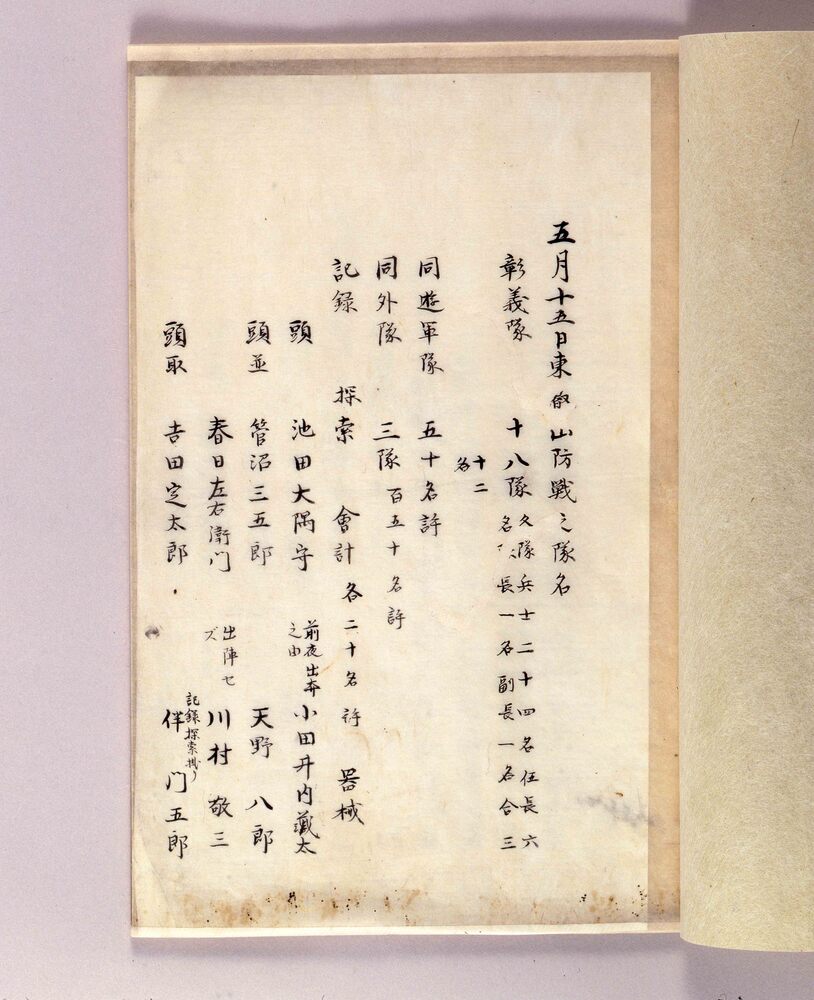 五月十五日東叡山防戦之隊名
彰義隊 十八隊 各隊兵士二十四名伍長六
名 隊長一名副長一名合三
十二
名
同遊軍隊 五十名許
同外隊 三隊 百五十名許
記録 探索 會計 各二十名許 器械
頭 池田大隅守 前夜出奔
之由 小田井内蔵太
頭並 菅沼三五郎 天野 八郎
春日左右衛門 出陣セ
ズ 川村 敬三
頭取 吉田定太郎 記録探索掛リ
伴 門五郎